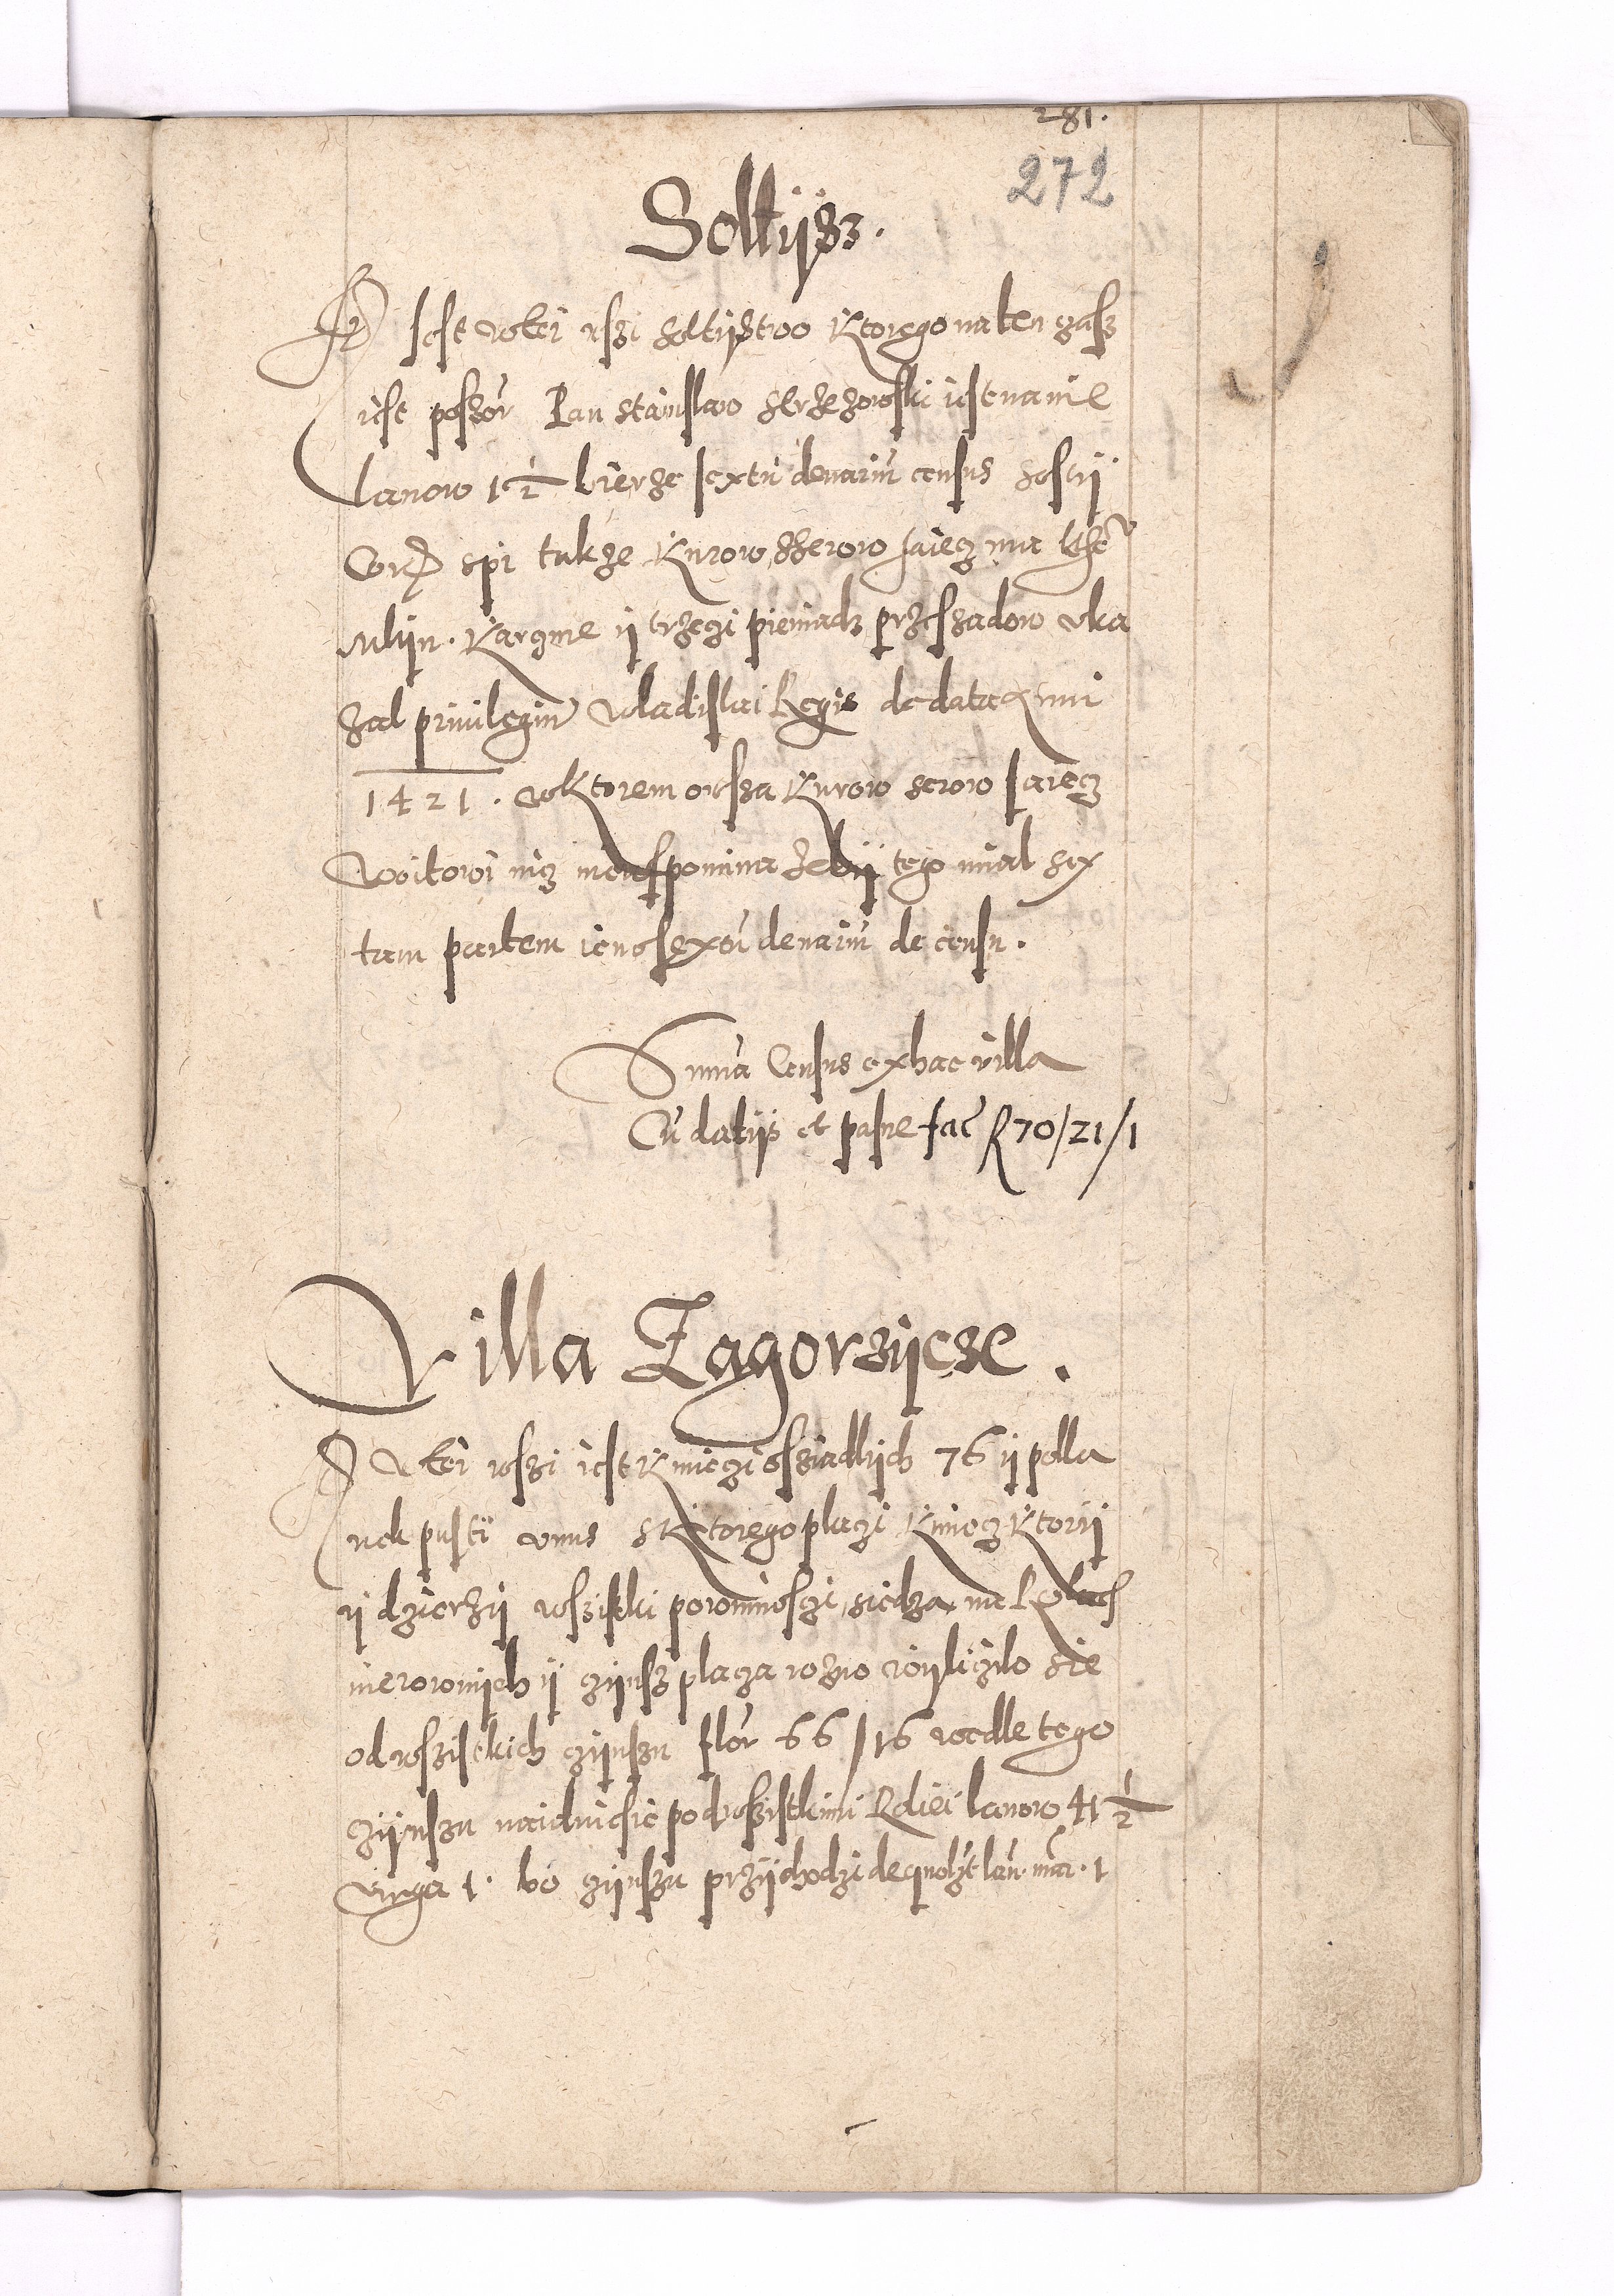 281.
272
Soltÿsz.
Jest w tei wszi soltÿstwo ktorego na ten czasz
iest possor Pan Stanislaw iest na nie
lanow 1½ bierze sextu denariu census
spi takze kurow sserow saiecz ma
mlijn. karczme ÿ trzeczi pieniadz przesszadow vka
zal priuilegiu Wladislai Regis de data Anni
1421. w ktorem orssza kurow serow saiecz
woitowi nicz niewspomina zebÿ tego mial sex
tam partem ieno sextu denariu de censu.
Summa Census ex hac villa
Cu datijs et pasne fac R 70/21/1
Villa Zagorzÿcze.
W tei wszi iest kmieczi osziadlÿch 76 ÿ polla
nek pusti vnus s ktorego placzi kmiecz ktorÿ
ÿ dzierzÿ wszistki powinnosczi, siedza na Rolach
nierownÿch ÿ czÿnsz placza rozno wÿliczilo sie
od wszistkich czÿnszu flor 66/16 wedle tego
czÿnszu naidnie sie pod wszistkimi kdiei lanow 41½
virga 1. bo czÿnszu przÿchodzi de quolzt lan. mar. 1